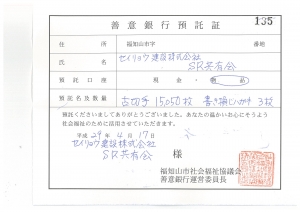 135
善意銀行預託証
住所 福知山市字 番地
氏名 セイリョウ建設株式会社
SR共有会
預託口座 現金・物品
預託名及数量 古切手 15,050枚 書き損じハガキ 3枚
預託くださいましてありがとうございました。あなたの温かいお心にそうよう
社会福祉のために活用させていただきます。
平成29年4月17日
セイリョウ建設株式会社
SR共有会 様
福知山市社会福祉協議会
善意銀行運営委員長